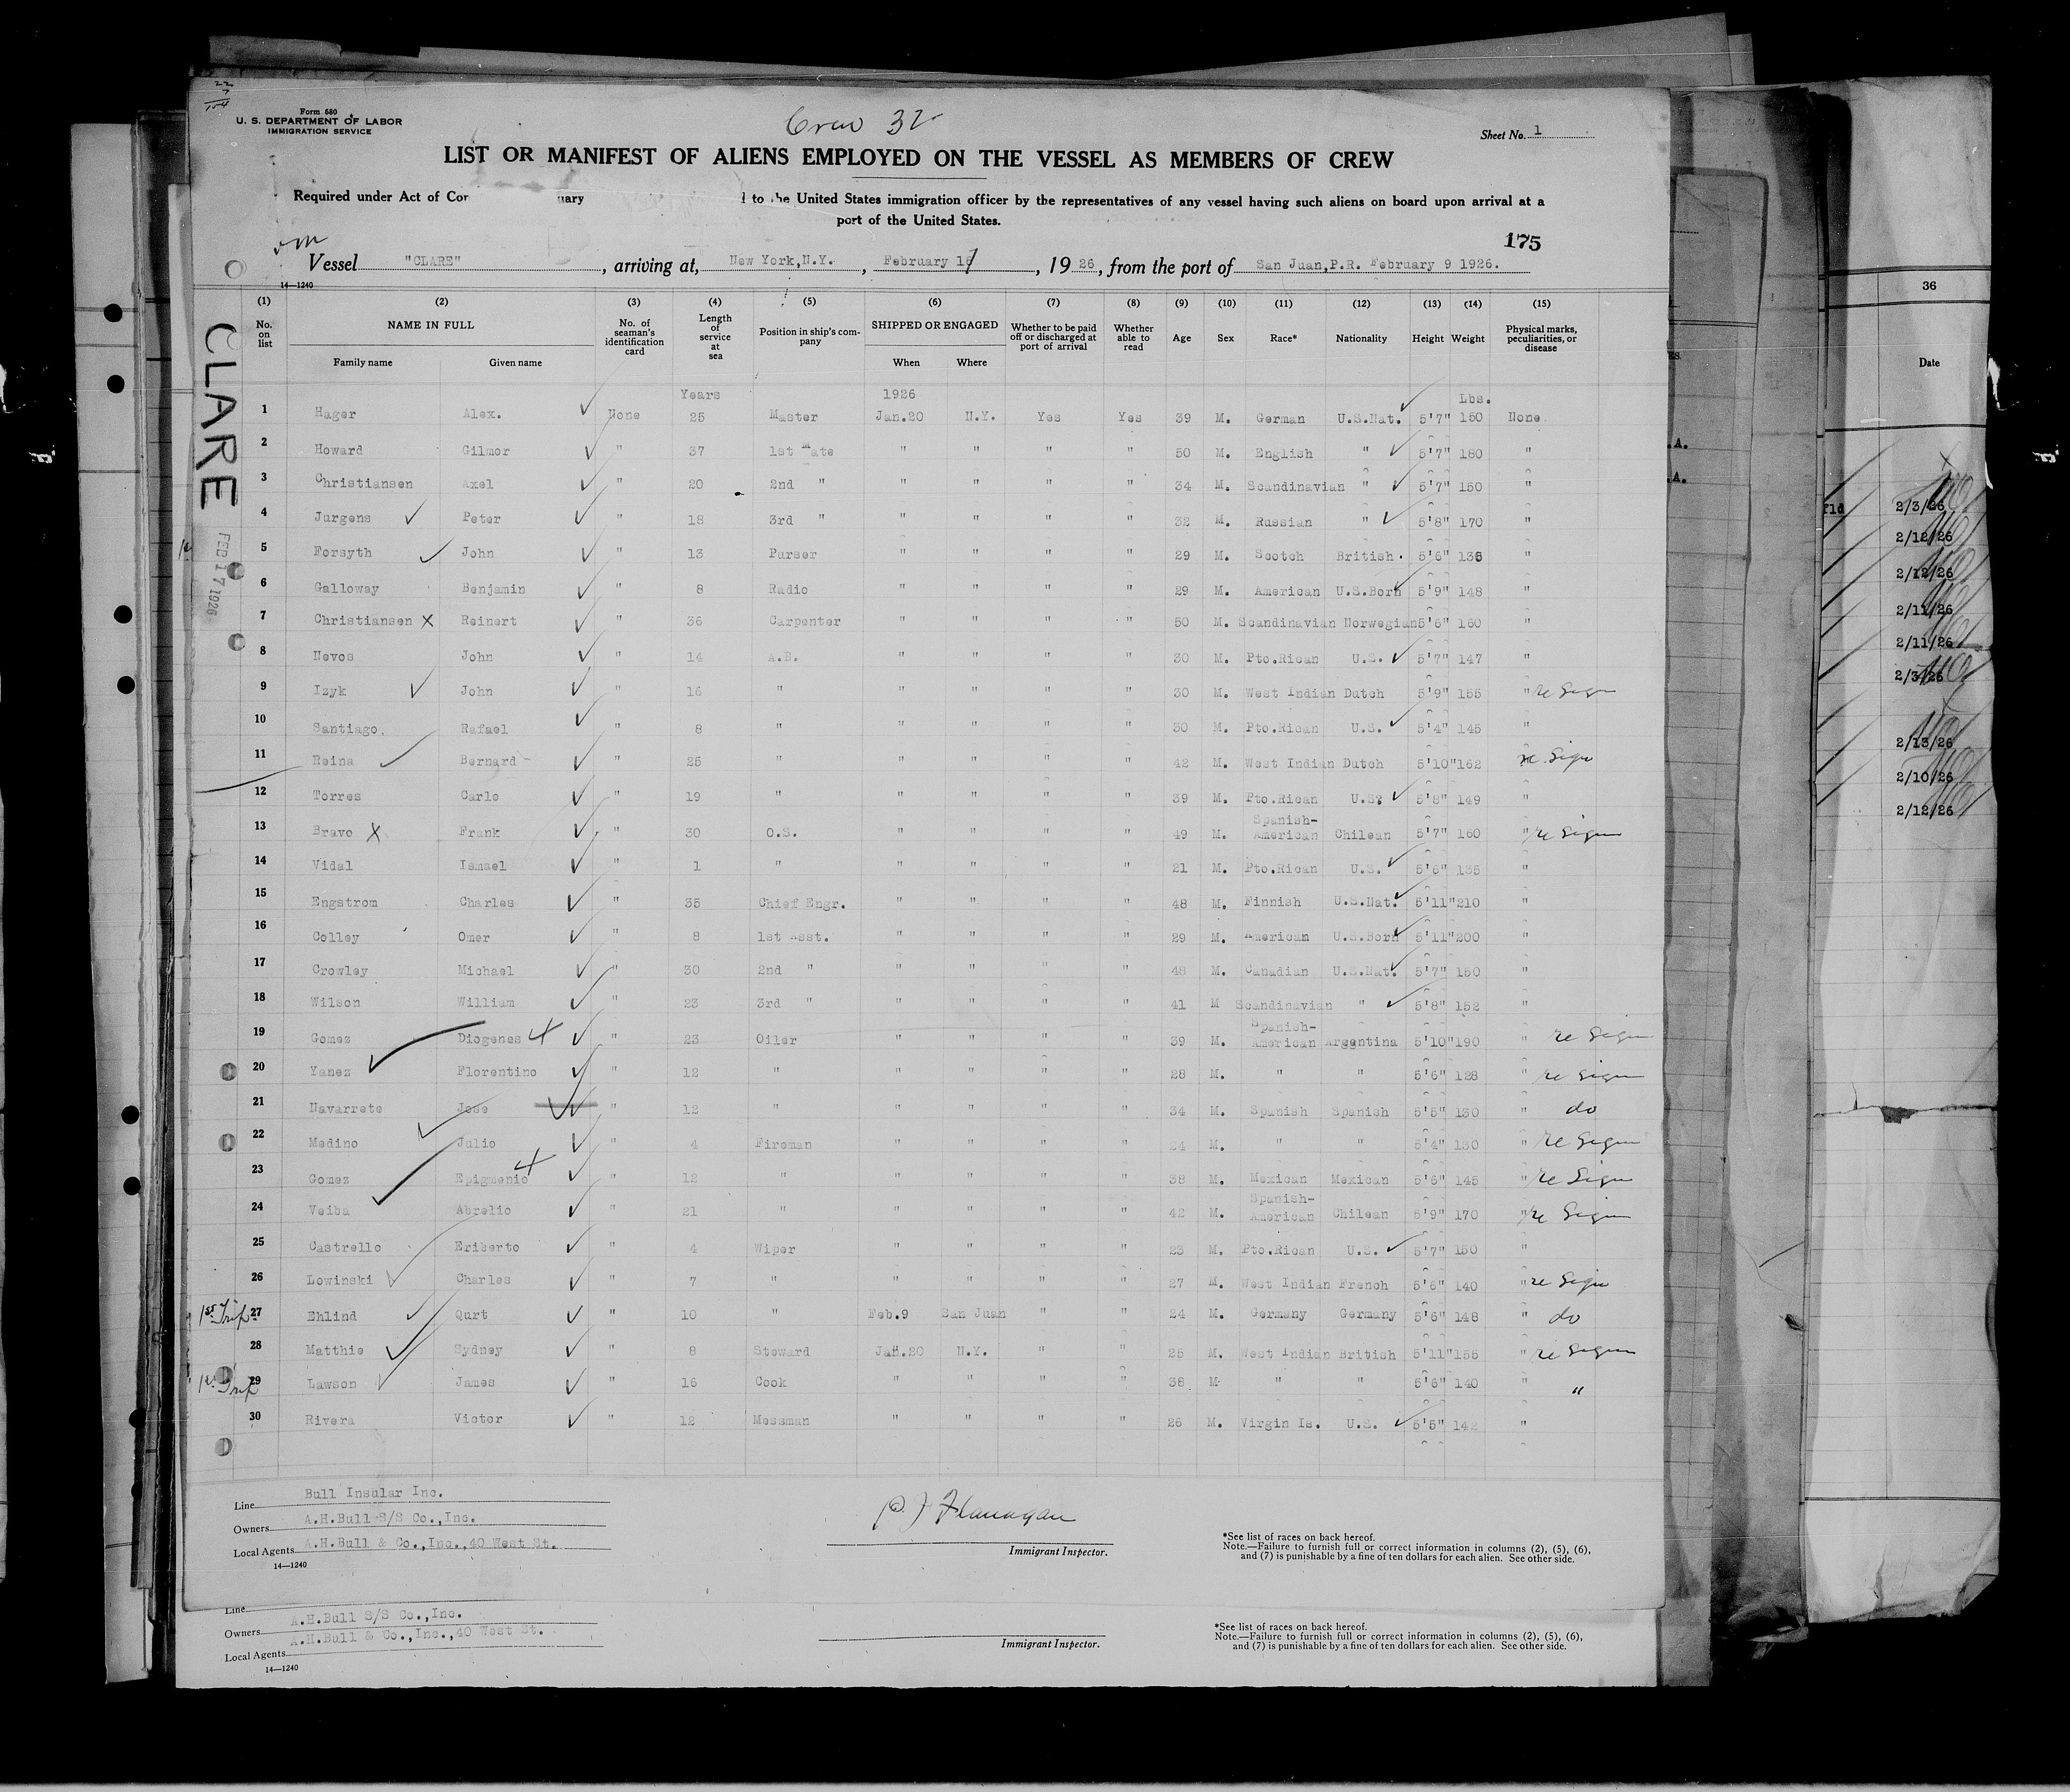 Form 680
U. S. DEPARTMENT OF LABOR
IMMIGRATION SERVICE
Crew 32
Sheet No. 1
LIST OR MANIFEST OF ALIENS EMPLOYED ON THE VESSEL AS MEMBERS OF CREW
Required under Act of Con uary to the United States immigration officer by the representatives of any vessel having such aliens on board upon arrival at a
port of the United States.
175
Vessel "CLARE", arriving at, New York,N.Y., February 17, 1926, from the port of San Juan,P.R. February 9 1926.
14—1240
CLARE
FEB 17 1926
(1) (2) (3) (4) (5) (6) (7) (8) (9) (10) (11) (12) (13) (14) (15)
No. on list NAME IN FULL Family name Given name No. of seaman's identification card Length of service at sea Position in ship's company SHIPPED OR ENGAGED When Where Whether to be paid off or discharged at port of arrival Whether able to read Age Sex Race* Nationality Height Weight Physical marks, peculiarities, or disease
Years 1926 Lbs.
1 Hager Alex. None 25 Master Jan.20 N.Y. Yes Yes 39 M. German U.S.Nat. 5'7" 150 None
2 Howard Gilmor " 37 1st Mate " " " " 50 M. English " 5'7" 180 "
3 Christiansen Axel " 20 2nd " " " " " 34 M. Scandinavian " 5'7" 150 "
4 Jurgens Peter " 18 3rd " " " " " 32 M. Russian " 5'8" 170 "
5 Forsyth John " 13 Purser " " " " 29 M. Scotch British 5'6" 135 "
6 Galloway Benjamin " 8 Radio " " " " 29 M. American U.S.Born 5'9" 148 "
7 Christiansen X Reinert " 36 Carpenter " " " " 50 M. Scandinavian Norwegian 5'6" 160 "
8 Nevos John " 14 A.B. " " " " 30 M. Pto.Rican U.S. 5'7" 147 "
9 Izyk John " 16 " " " " " 30 M. West Indian Dutch 5'9" 155 " re Sign
10 Santiago. Rafael " 8 " " " " " 30 M. Pto.Rican U.S. 5'4" 145 "
11 Reina Bernard " 25 " " " " " 42 M. West Indian Dutch 5'10" 162 " re Sign
12 Torres Carlo " 19 " " " " " 39 M. Pto.Rican U.S. 5'8" 149 "
13 Bravo X Frank " 30 O.S. " " " " 49 M. Spanish-American Chilean 5'7" 160 " re Sign
14 Vidal Ismael " 1 " " " " " 21 M. Pto.Rican U.S. 5'6" 135 "
15 Engstrom Charles " 35 Chief Engr. " " " " 48 M. Finnish U.S.Nat. 5'11" 210 "
16 Colley Omer " 8 1st Asst. " " " " 29 M. American U.S.Born 5'11" 200 "
17 Crowley Michael " 30 2nd " " " " " 48 M. Canadian U.S.Nat. 5'7" 150 "
18 Wilson William " 23 3rd " " " " " 41 M Scandinavian " 5'8" 152 "
19 Gomez Diogenes X " 23 Oiler " " " " 39 M. Spanish-American Argentina 5'10" 190 " re Sign
20 Yanez Florentino " 12 " " " " " 28 M. " " 5'6" 128 " re Sign
21 Navarrete Jose " 12 " " " " " 34 M. Spanish Spanish 5'5" 130 " do
22 Medino Julio " 4 Fireman " " " " 24 M. " " 5'4" 130 " re Sign
23 Gomez Epigmenio X " 12 " " " " " 38 M. Mexican Mexican 5'6" 145 " re Sign
24 Veiba Abrelio " 21 " " " " " 42 M. Spanish-American Chilean 5'9" 170 " re Sign
25 Castrello Eriberto " 4 Wiper " " " " 23 M. Pto.Rican U.S. 5'7" 150 "
26 Lowinski Charles " 7 " " " " " 27 M. West Indian French 5'6" 140 " re Sign
1st Trip 27 Ehlind Qurt " 10 " Feb.9 San Juan " " 24 M. Germany Germany 5'6" 148 " do
28 Matthie Sydney " 8 Steward Jan.20 N.Y. " " 25 M. West Indian British 5'11" 155 " re Sign
1st Trip 29 Lawson James " 16 Cook " " " " 38 M " " 5'6" 140 " "
30 Rivera Victor " 12 Messman " " " " 26 M. Virgin Is. U.S. 5'5" 142 "
Line Bull Insular Inc.
Owners A.H.Bull S/S Co.,Inc.
Local Agents A.H.Bull & Co.,Inc.,40 West St.
14—1240
P. J Flanagan
Immigrant Inspector.
*See list of races on back hereof.
Note.—Failure to furnish full or correct information in columns (2), (5), (6),
and (7) is punishable by a fine of ten dollars for each alien. See other side.
Line
Owners A.H.Bull S/S Co.,Inc.
Local Agents A.H.Bull & Co.,Inc.,40 West St.
14—1240
Immigrant Inspector.
*See list of races on back hereof.
Note.—Failure to furnish full or correct information in columns (2), (5), (6),
and (7) is punishable by a fine of ten dollars for each alien. See other side.
36
Date
2/3/26
2/12/26
2/12/26
2/11/26
2/11/26
2/3/26
2/13/26
2/10/26
2/12/26